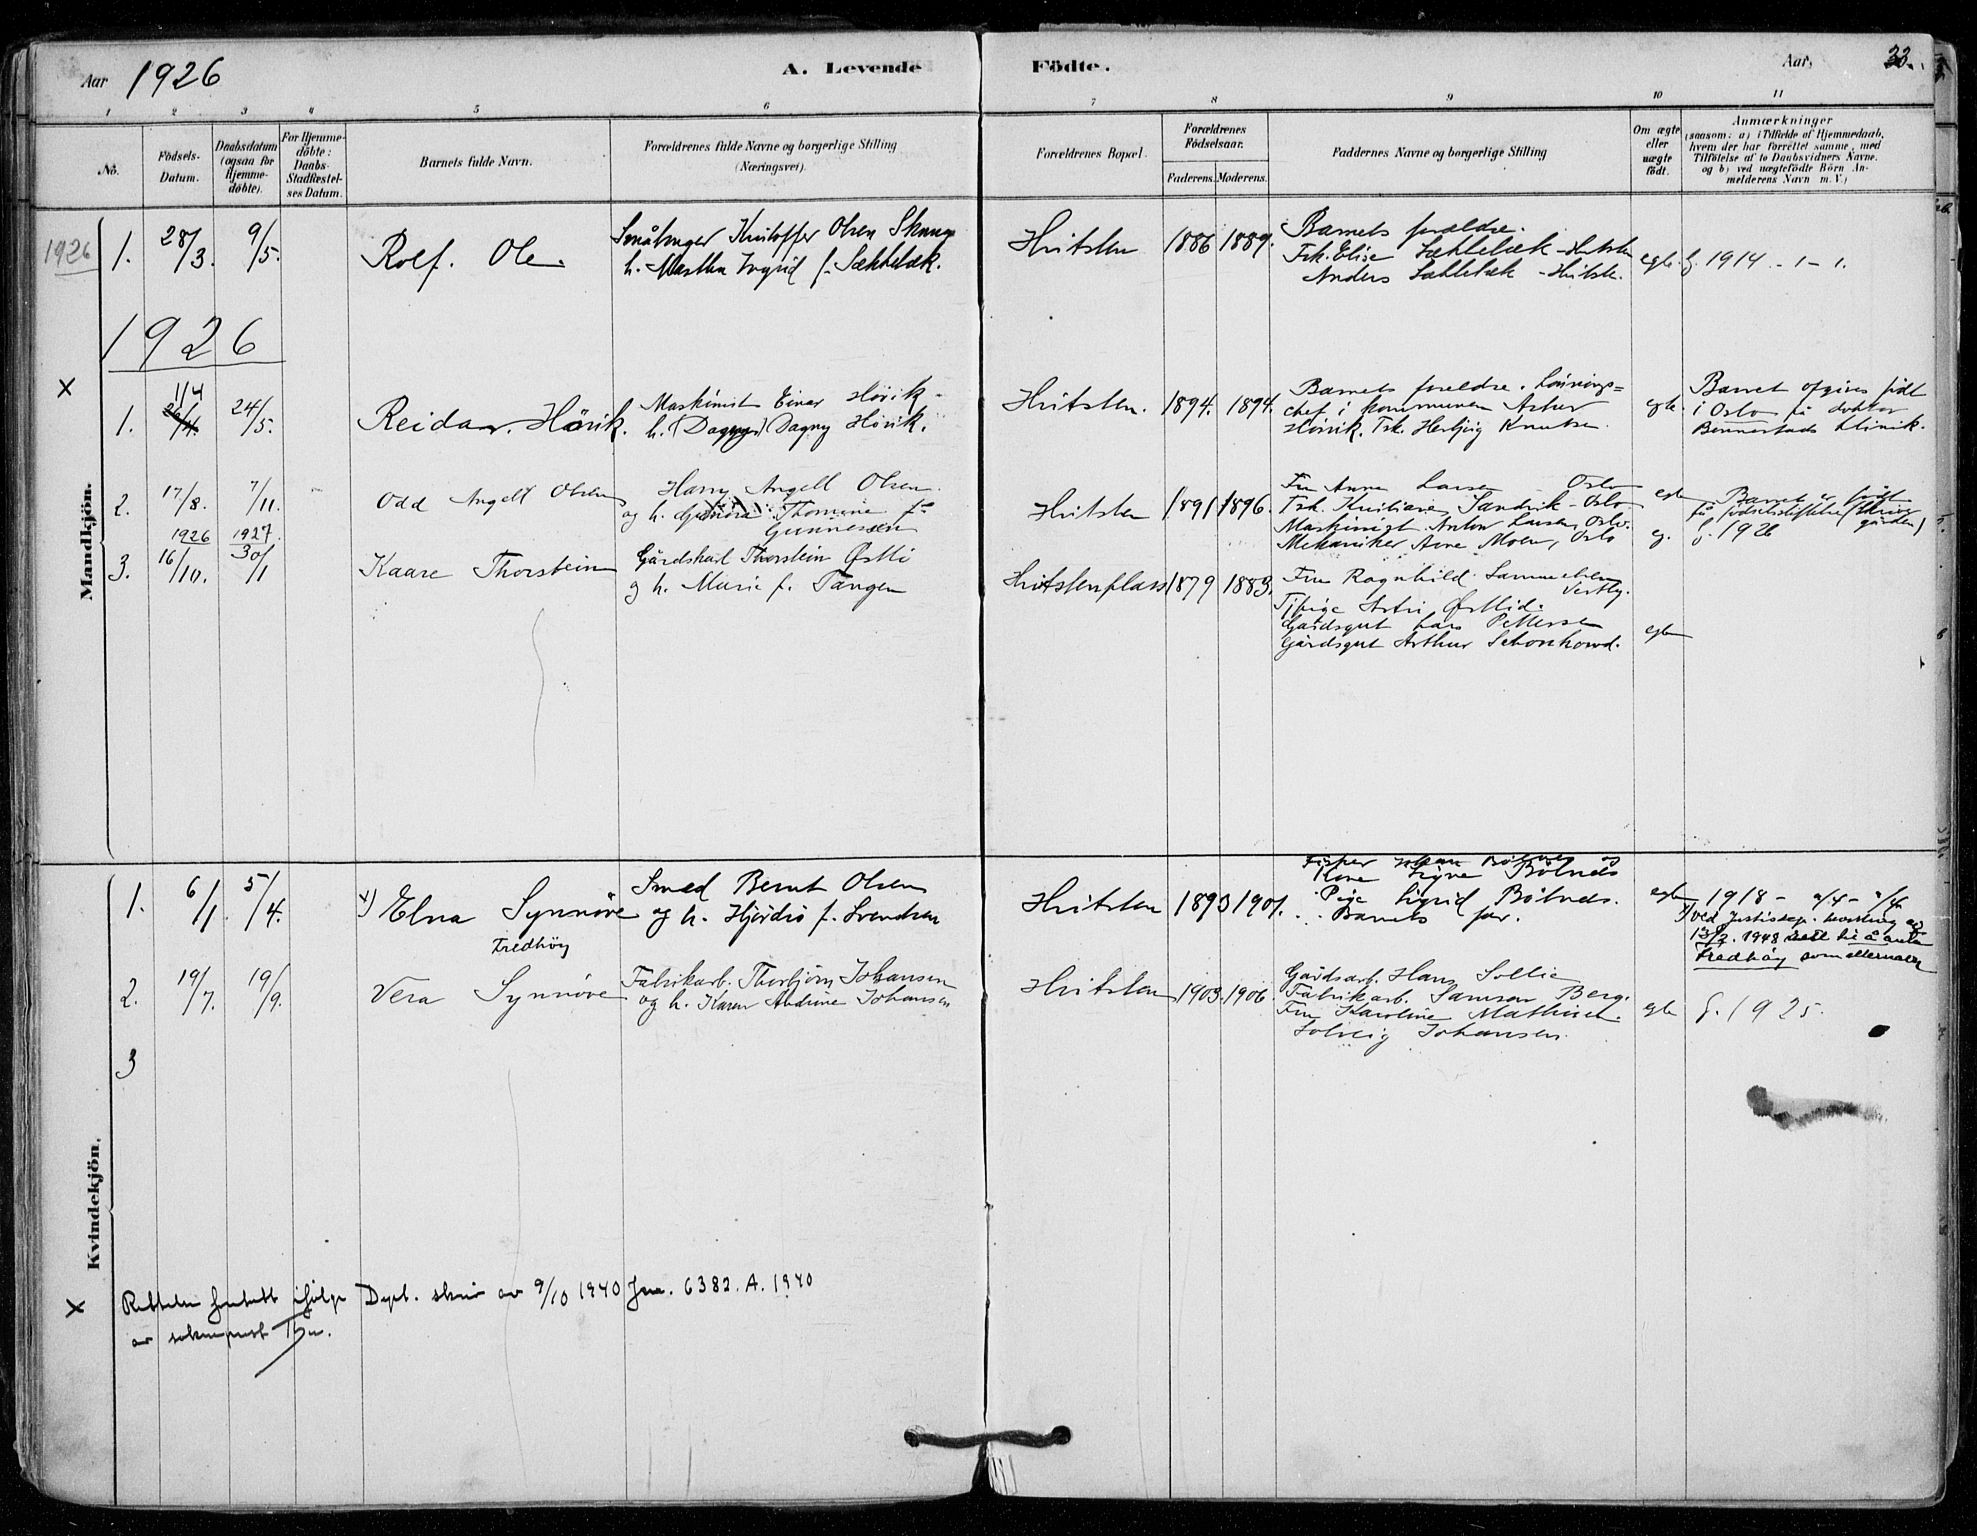 Aar 1926
A. Levende Födte.
Aar,
33.
1 2 3 4 5 6 7 8 9 10 11
No.
Födsels-
Datum.
Daabsdatum
(ogsaa for
Hjemme-
döbte).
For Hjemme-
döbte:
Daabs-
Stadfæstel-
ses Datum.
Barnets fulde Navn.
Forældrenes fulde Navne og borgerlige Stilling
(Næringsvei).
Forældrenes Bopæl.
Forældrenes
Födselsaar.
Faderens. Moderens.
Faddernes Navne og borgerlige Stilling
Om ægte
eller
uægte
födt.
Anmærkninger
(saasom: a) i Tilfælde af Hjemmedaab,
hvem der har forrettet samme, med
Tilföielse af to Daabsvidners Navne.
og b) ved uægtefödte Börn An-
melderens Navn m. V.)
Mandkjön.
1926
1.
28/3.
9/5.
Rolf. Ole.
Småbruger Kristoffer Olsen
h. Martha Ingrid f. Sækkelæk.
Hvitsten
1886 1889.
Barnets forældre.
Frk. Elise Sækkelæk - Hvitsten
Anders Sækkelæk - Hvitst.
egte.
g. 1914 - 1 - 1.
1926
x
1.
1/4
24/5.
Reidar. Hövik.
Maskinist Einar Hövik -
h. (Dagny) Dagny Hövik.
Hvitsten.
1894. 1894.
Barnets foreldre. Lönnings=
chef i kommunen
Hövik. Frk. Herbjörg Knutsen.
egte.
Barnet opgives född
i Oslo på doktor
Bennestads klinik.
2.
17/8.
7/11.
Odd Angell Olsen
Harry Angell Olsen
og h. Gunora Thomine f.
Gunnesen
Hvitsten
1891 1896.
Fru Anna Larsen Oslo
Frk. Kristiane Sandvik - Oslo
Maskinist Anton Larsen, Oslo.
Mekaniker Arne Moen, Oslo
egte
e.
Barnet er född
på födselsstiftelsen
g. 1926
3.
1926
16/10.
1927.
30/1
Kaare Thorstein
Gårdskarl Thorstein Østli
og h. Marie f. Tangen
Hvitstenplass
1879 1883.
Fru Ragnhild Samuelsen
Vestby.
Tjpige Østlid.
Gårdsgut Lars Pettersen
Gårdsgut Arthur
egte
Kvindekjön.
1.
6/1.
5/4.
x) Elna Synnöve
Fredhöy
Smed Bernt Olsen
og h. Hjördis f. Svendsen
Hvitsten
1893 1901.
Fisker Johan Bölnes og
Kone Signe Bölnes
Pige Sigrid Bölnes.
Barnets far.
egte
1918 -
x) ved Justisdep.
13/2. 1948 til å anta
Fredhöy som etternavn
2.
19/7.
19/9.
Vera Synnöve
Fabrikarb. Thorbjörn Johansen
og h. Karen Andrine Johansen
Hvitsten
1903. 1906.
Gårdsarb. Hans Sollie
Fabrikarb. Samson Berg.
Fru Karoline
Solveig Johansen.
egte
g. 1925.
3
x
Rettelse foretatt ifölge Dept. skriv av 9/10 1940 Jnr. 6382. A. 1940
av sokneprest